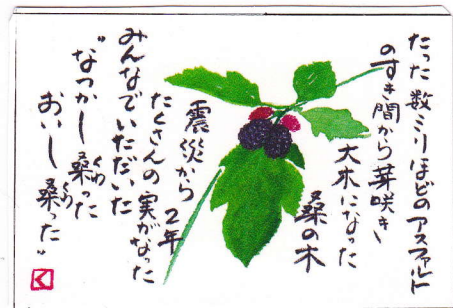 たった数ミリほどのアスファルト
のすき間から芽咲き
大木になった
桑の木
震災から2年
たくさんの実がなった
みんなでいただいた
"なつかし桑った
くわ
おいし桑った"
くわ
く